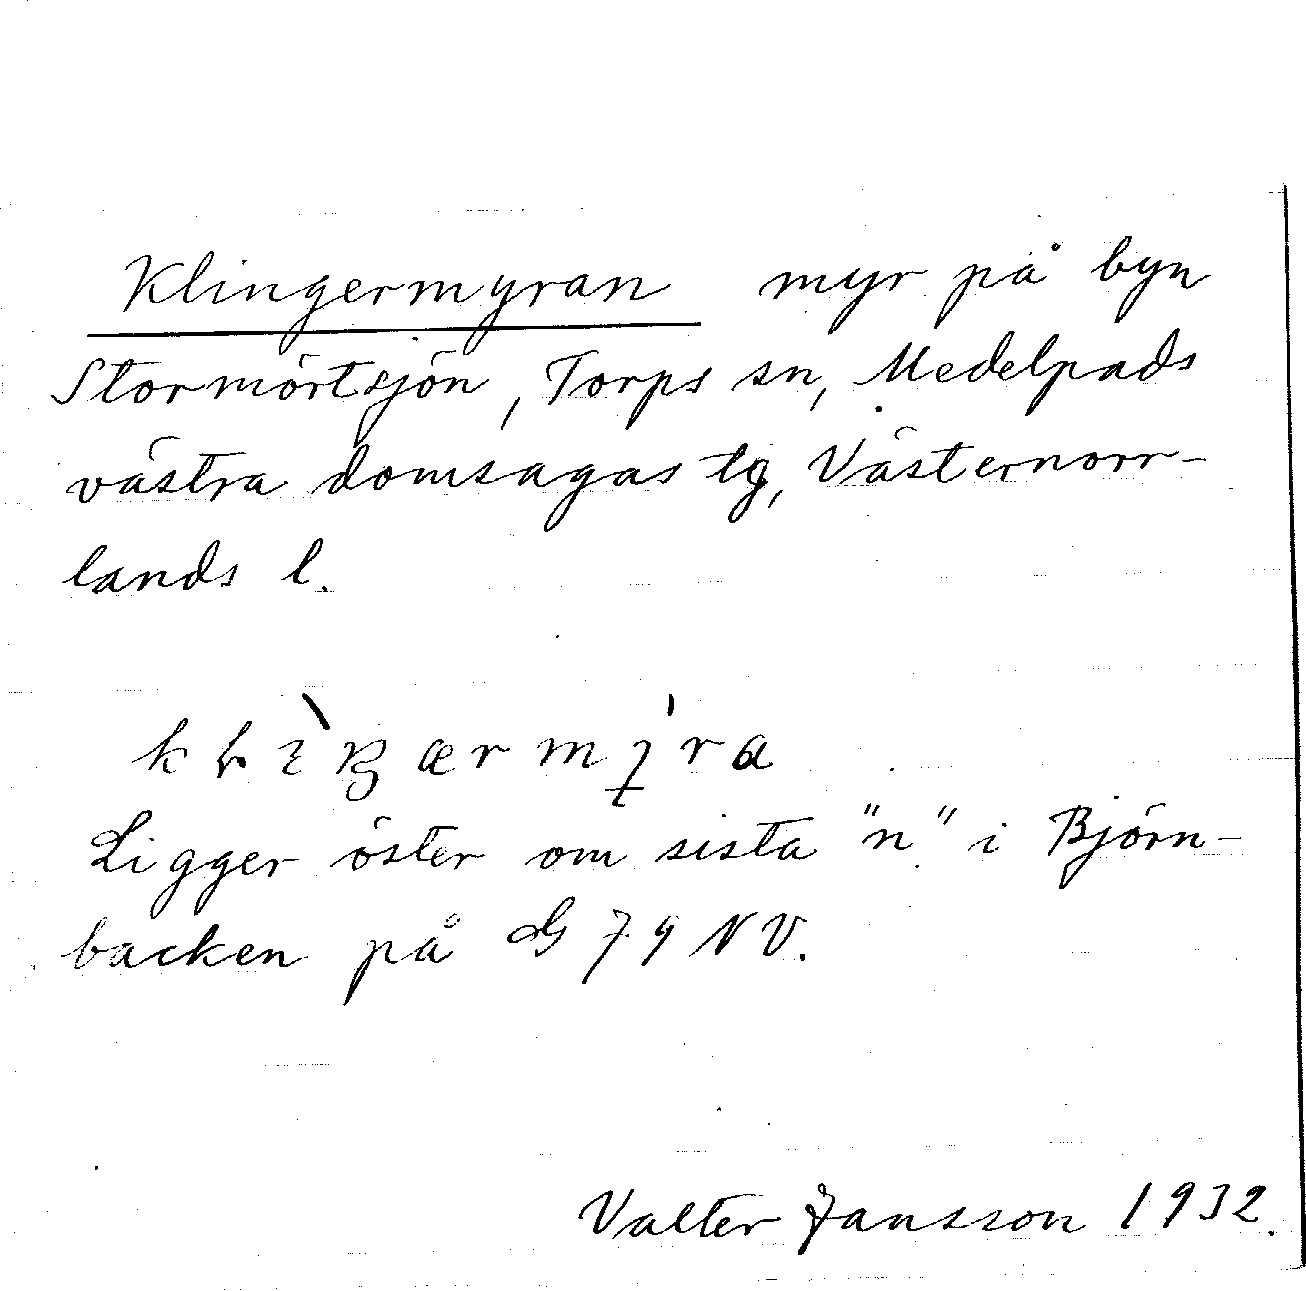 Klingermyran myr på byn
Stormörtsjön, Torps sn, Medelpads
västra domsagas tg, Västernorr-
lands l.
Ligger öster om sista "n" i Björn-
backen på G 79 NV.
Valter Jansson 1932.